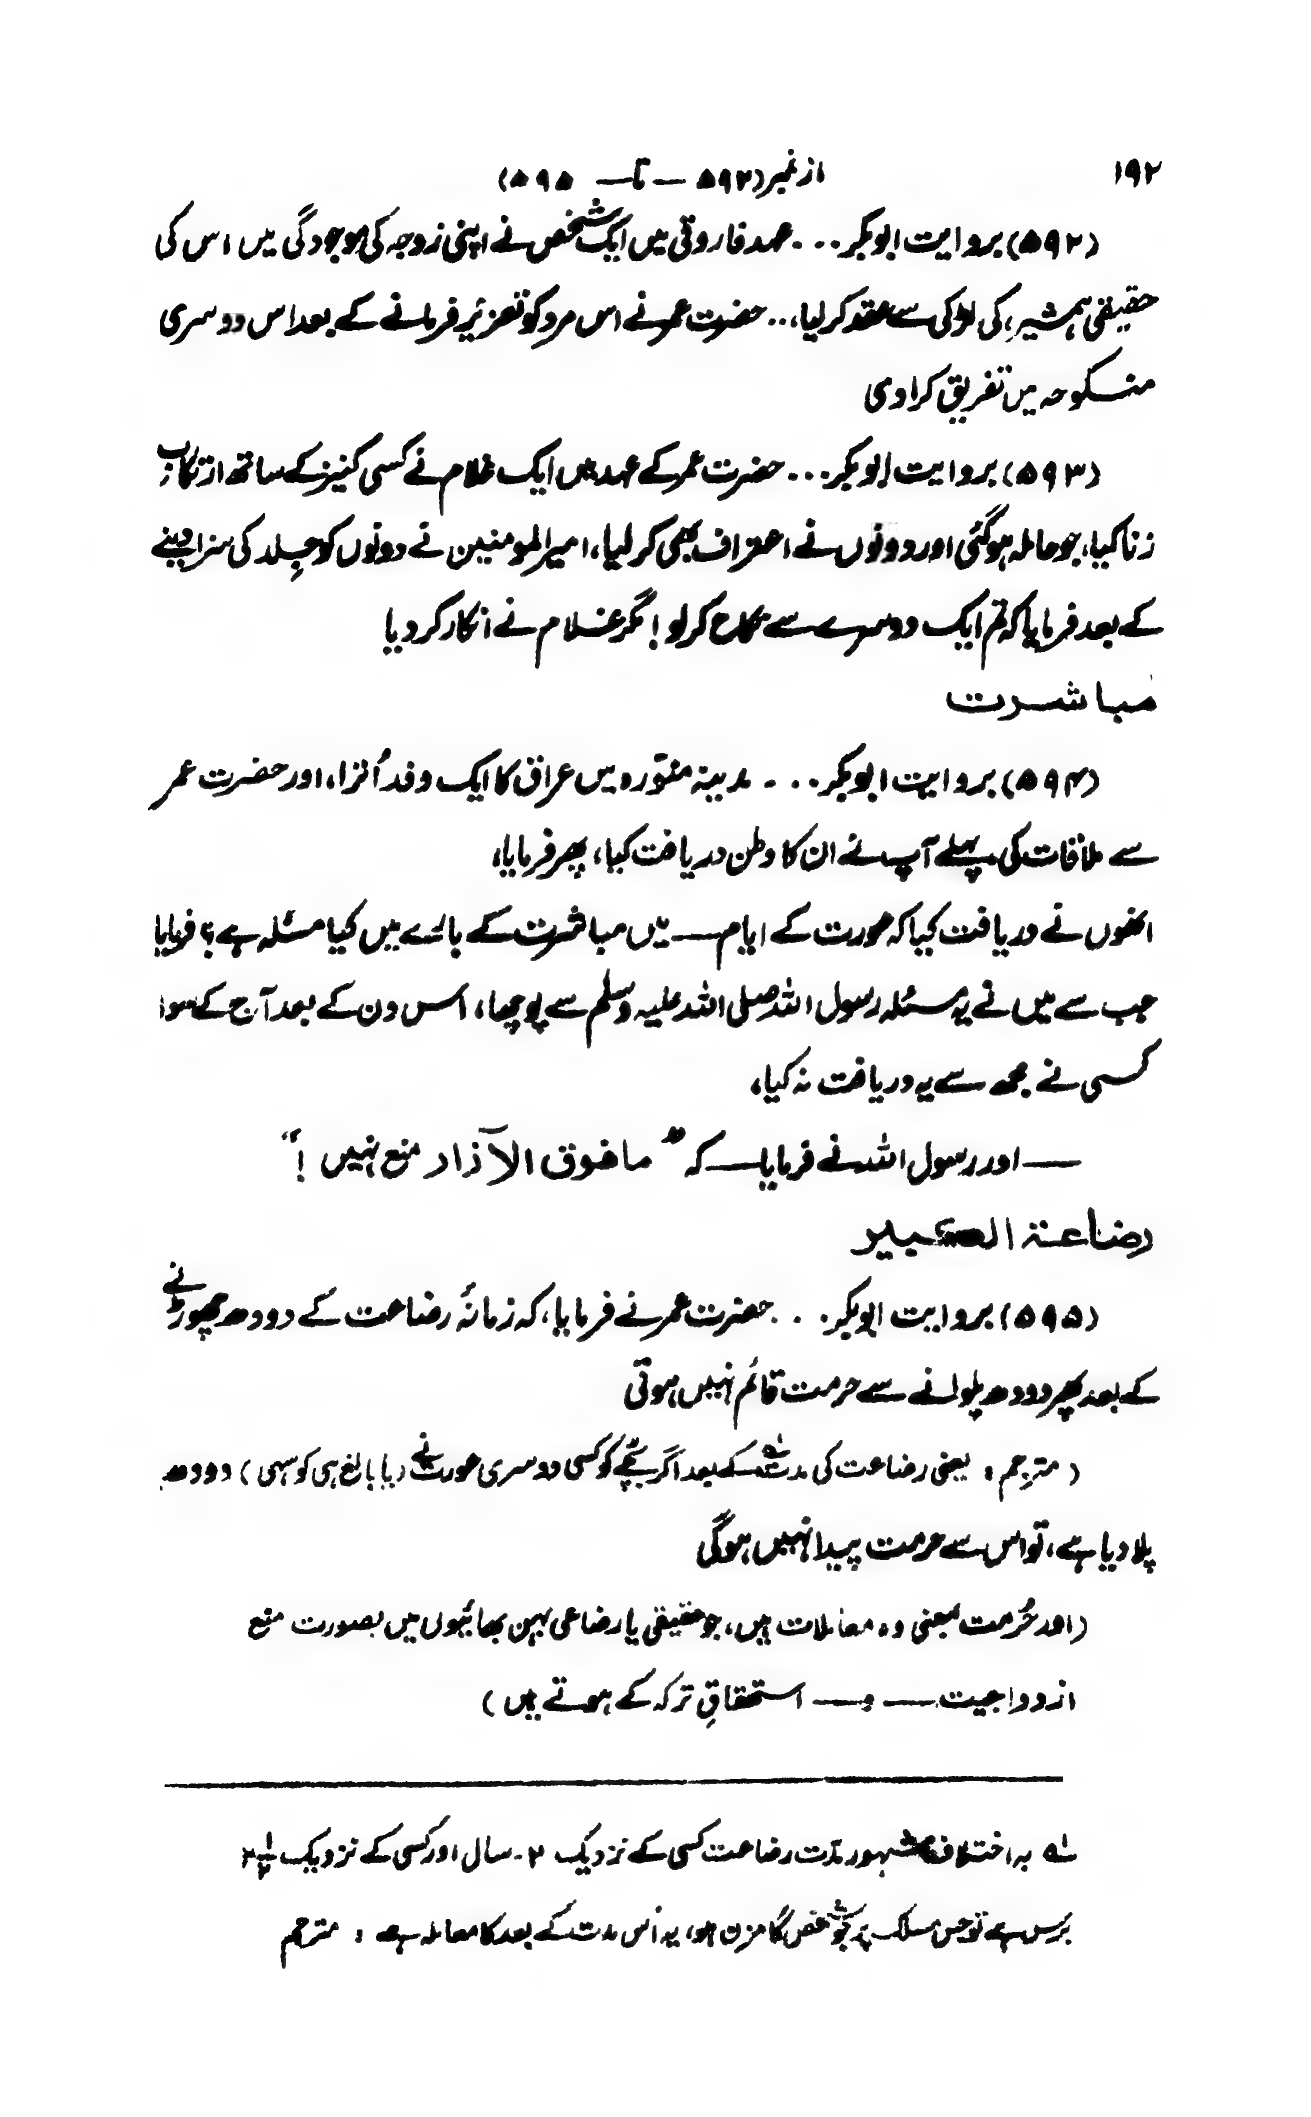 ۱۹۲
از نمبر (۵۹۲ — تا — ۵۹۵)
(۵۹۲) بروایت ابوبکر... عہد فاروقی میں ایک شخص نے اپنی زوجہ کی موجودگی میں اس کی
حقیقی ہمشیرہ کی لڑکی سے عقد کر لیا،.. حضرت عمر نے اس مرد کو تعزیر فرمانے کے بعد اس دوسری
منکوحہ میں تفریق کرا دی
(۵۹۳) بروایت ابوبکر... حضرت عمر کے عہد میں ایک غلام نے کسی کنیز کے ساتھ ارتکاب
زنا کیا، جو حاملہ ہو گئی اور دونوں نے اعتراف بھی کر لیا، امیرالمومنین نے دونوں کو جلد کی سزا دینے
کے بعد فرمایا کہ تم ایک دوسرے سے نکاح کر لو! مگر غلام نے انکار کر دیا
مباشرت
(۵۹۴) بروایت ابوبکر... مدینہ منوّرہ میں عراق کا ایک وفد اُترا، اور حضرت عمر
سے ملاقات کی، پہلے آپ نے ان کا وطن دریافت کیا، پھر فرمایا،
انھوں نے دریافت کیا کہ عورت کے ایام — میں مباشرت کے بارے میں کیا مسئلہ ہے؟ فرمایا
جب سے میں نے یہ مسئلہ رسول اللہ صلی اللہ علیہ وسلم سے پوچھا، اس دن کے بعد آج کے سوا
کسی نے مجھ سے یہ دریافت نہ کیا،
— اور رسول اللہ نے فرمایا — کہ "ما فوق الآزار منع نہیں!"
رضاعۃ الکبیر
(۵۹۵) بروایت ابوبکر... حضرت عمر نے فرمایا، کہ زمانۂ رضاعت کے دودھ چھوڑنے
کے بعد پھر دودھ پلوانے سے حرمت قائم نہیں ہوتی
(مترجم: یعنی رضاعت کی مدت؂۱ کے بعد اگر بچّے کو کسی دوسری عورت نے (یا بالغ ہی کو سہی) دودھ
پلا دیا ہے، تو اس سے حرمت پیدا نہیں ہو گی
(اور حُرمت بمعنی وہ معاملات ہیں، جو حقیقی یا رضاعی بہن بھائیوں میں بصورت منع
ازدواجیت — و — استحقاقِ ترکہ کے ہوتے ہیں)
؂۱ بہ اختلاف مشہور مدّت رضاعت کسی کے نزدیک ۲-سال اور کسی کے نزدیک ۲½
برس ہے تو جس مسلک پر جو شخص گامزن ہو، یہ اُس مدت کے بعد کا معاملہ ہے : مترجم